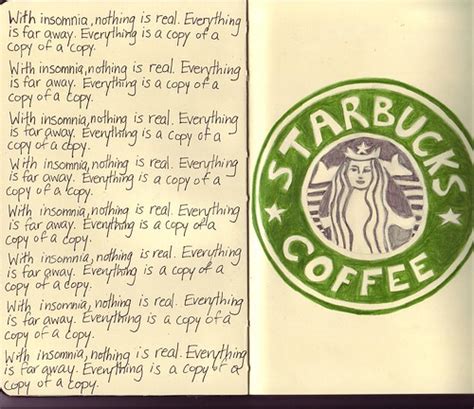 With insomnia, nothing is real. Everything
is far away. Everything is a copy of a
copy of a copy.
With insomnia, nothing is real. Everything
is far away. Everything is a copy of a
copy of a copy.
With insomnia, nothing is real. Everything
is far away. Everything is a copy of a
copy of a copy.
With insomnia, nothing is real. Everything
is far away. Everything is a copy of a
copy of a copy.
With insomnia, nothing is real. Everything
is far away. Everything is a copy of a
copy of a copy.
With insomnia, nothing is real. Everything
is far away. Everything is a copy of a
copy of a copy.
With insomnia, nothing is real. Everything
is far away. Everything is a copy of a
copy of a copy.
With insomnia, nothing is real. Everything
is far away. Everything is a copy of a
copy of a copy.
STARBUCKS
COFFEE